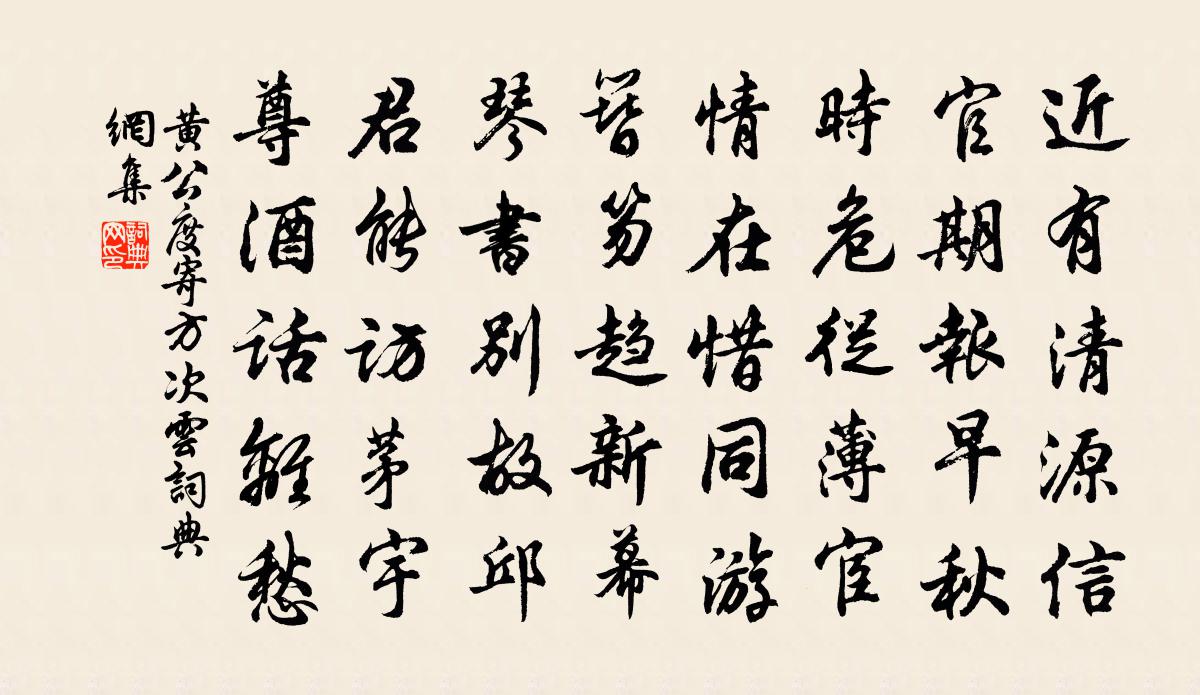 近有清源信
官期報早秋
時危從薄宦
情在惜同游
簪笏趨新幕
琴書別故邱
君能訪茅宇
尊酒話離愁
黃公度寄方次雲詞典
網集
詞典
网印